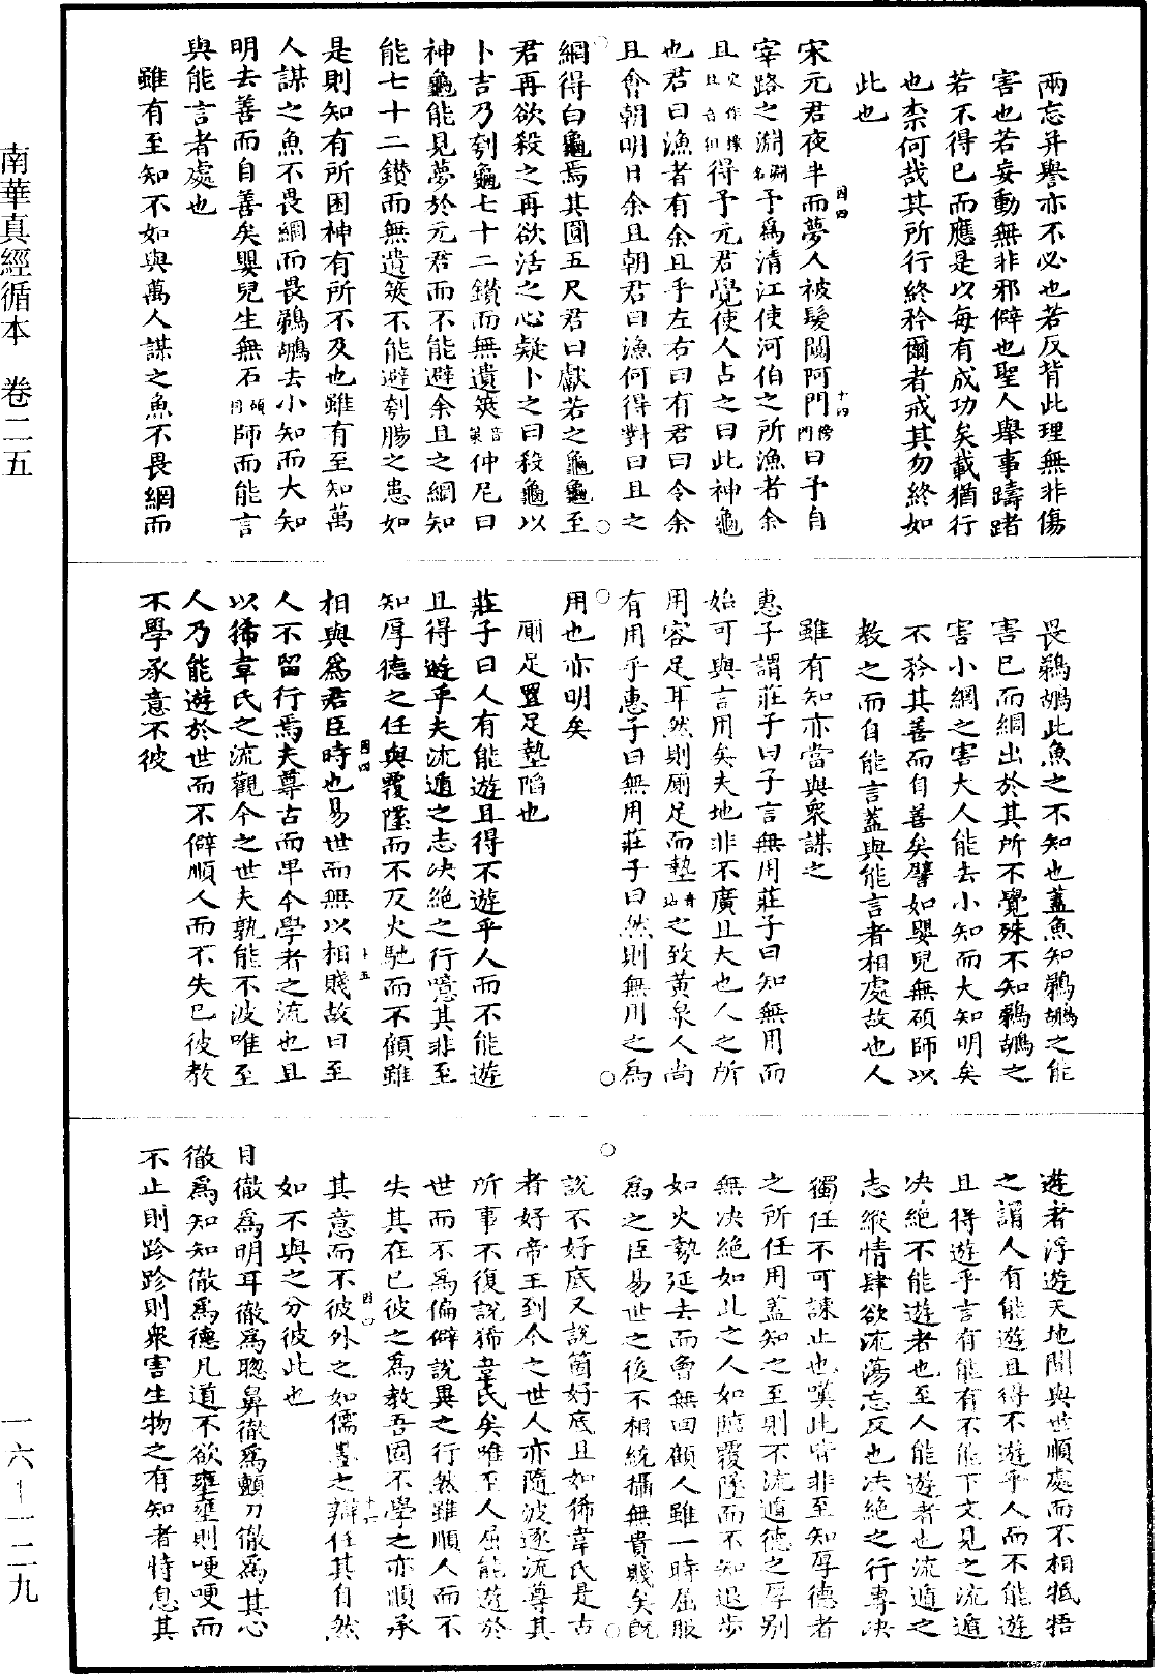 南華真經循本　卷二五
兩忘并譽亦不必也若反背此理無非傷
害也若妄動無非邪僻也聖人舉事躊躇
若不得已而應是以每有成功矣載猶行
也柰何哉其所行終矜爾者戒其勿終如
此也
宋元君夜半而夢人被髮闚阿門傍門曰予自
宰路之淵淵名予爲清江使河伯之所漁者余
且得予元君覺使人占之曰此神龜
也君曰漁者有余且乎左右曰有君曰令余
且會朝明日余且朝君曰漁何得對曰且之
網得白龜焉其圓五尺君曰獻若之龜龜至
君再欲殺之再欲活之心疑卜之曰殺龜以
卜吉乃刳龜七十二鑽而無遺筴音策仲尼曰
神龜能見夢於元君而不能避余且之網知
能七十二鑽而無遺筴不能避刳腸之患如
是則知有所困神有所不及也雖有至知萬
人謀之魚不畏網而畏鵜鶘去小知而大知
明去善而自善矣嬰兒生無石碩同師而能言
與能言者處也
雖有至知不如與萬人謀之魚不畏網而
畏鵜鶘此魚之不知也蓋魚知鵜鶘之能
害已而網出於其所不覺殊不知鵜鶘之
害小網之害大人能去小知而大知明矣
不矜其善而自善矣譬如嬰兒無碩師以
教之而自能言蓋與能言者相處故也人
雖有知亦當與衆謀之
惠子謂莊子曰子言無用莊子曰知無用而
始可與言用矣夫地非不廣且大也人之所
用容足耳然則厠足而墊之致黃泉人尚
有用乎惠子曰無用莊子曰然則無用之爲
用也亦明矣
厠足置足墊陷也
莊子曰人有能遊且得不遊乎人而不能遊
且得遊乎夫流遁之志决絶之行噫其非至
知厚德之任與覆墜而不反火馳而不顧雖
相與爲君臣時也易世而無以相賤故曰至
人不留行焉夫尊古而卑今學者之流也且
以狶韋氏之流觀今之世夫孰能不波唯至
人乃能遊於世而不僻順人而不失已彼教
不學承意不彼
遊者浮遊天地間與世順處而不相牴牾
之謂人有能遊且得不遊乎人而不能遊
且得遊乎言有能有不能下文見之流遁
决絶不能遊者也至人能遊者也流遁之
志縱情肆欲流蕩忘反也决絶之行專决
獨任不可諫止也嘆此皆非至知厚德者
之所任用蓋知之至則不流遁德之厚則
無决絶如此之人如臨覆墜而不知退步
如火勢延去而會無回顧人雖一時屈服
爲之臣易世之後不相統攝無貴賤矣旣
說不好底又說箇好底且如狶韋氏是古
者好帝王到今之世人亦隨波逐流尊其
所事不復說狶韋氏矣唯至人屈能遊於
世而不爲偏僻說異之行然雖順人而不
失其在已彼之爲教吾固不學之亦順承
其意而不彼外之如儒墨之辯任其自然
如不與之分彼此也
目徹爲明耳徹爲聰鼻徹爲顫刀徹爲其心
徹爲知知徹爲德凡道不欲壅壅則哽哽而
不止則跈跈則衆害生物之有知者恃息其
一六——二九